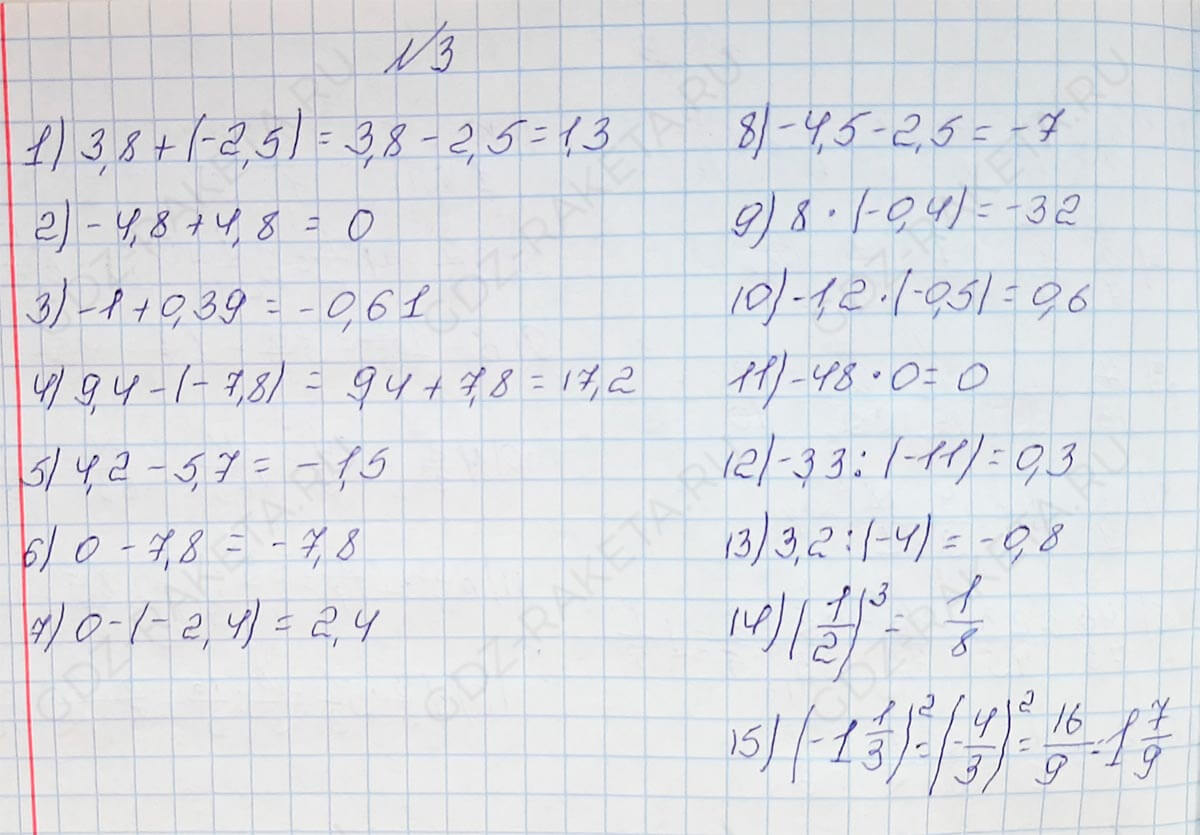 №3
1) 3,8 + (-2,5) = 3,8 - 2,5 = 1,3
2) -4,8 + 4,8 = 0
3) -1 + 0,39 = -0,61
4) 9,4 - (-7,8) = 9,4 + 7,8 = 17,2
5) 4,2 - 5,7 = -1,5
6) 0 - 7,8 = -7,8
7) 0 - (-2,4) = 2,4
8) -4,5 - 2,5 = -7
9) 8 · (-0,4) = -32
10) -1,2 · (-0,5) = 0,6
11) -48 · 0 = 0
12) -3,3 : (-11) = 0,3
13) 3,2 : (-4) = -0,8
14) (1/2)³ = 1/8
15) (-1 1/3)² = (-4/3)² = 16/9 = 1 7/9
GDZ-RAKETA.RU